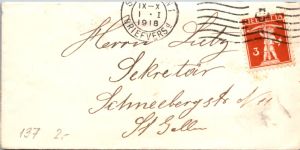 IX-X
1·I
1918
BRIEFVERS
HELVETIA
3
Herrn Lutz-
Sekretär
Schneebergstr No 11
St Gallen
137 2.-